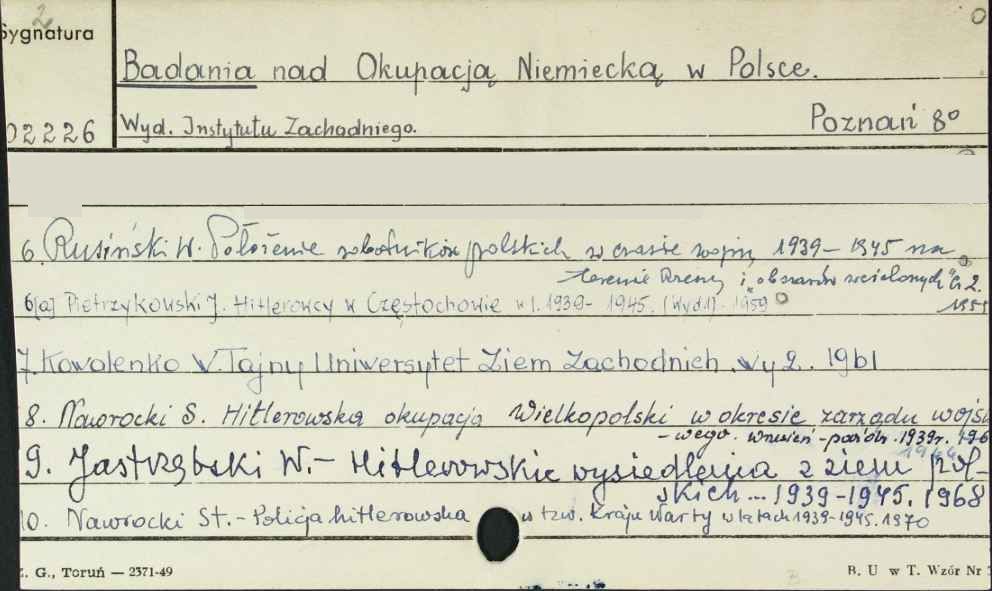 2
Sygnatura
O
Badania nad Okupacją Niemiecką w Polsce.
02226
Wyd. Instytutu Zachodniego.
Poznań 8°
6. Rusiński W. Położenie robotników polskich w czasie wojny 1939–1945 na
terenie Rzeszy i „obszarów wcielonych" Cz 2.
6(a) Pietrzykowski J. Hitlerowcy w Częstochowie w l. 1939- 1945. (Wyd.1). 1959
7. Kowalenko W. Tajny Uniwersytet Ziem Zachodnich. wy 2. 1961
8. Nawrocki S. Hitlerowska okupacja Wielkopolski w okresie zarządu wojsk
-wego. wrzesień-paźdz. 1939r. 196
9. Jastrzębski W.- Hitlerowskie wysiedlenia z ziem pol-
skich... 1939-1945. 1968
10. Nawrocki St.- Policja hitlerowska w tzw. Kraju Warty w latach 1939-1945. 1970
Z. G., Toruń — 2371-49
B. U w T. Wzór Nr